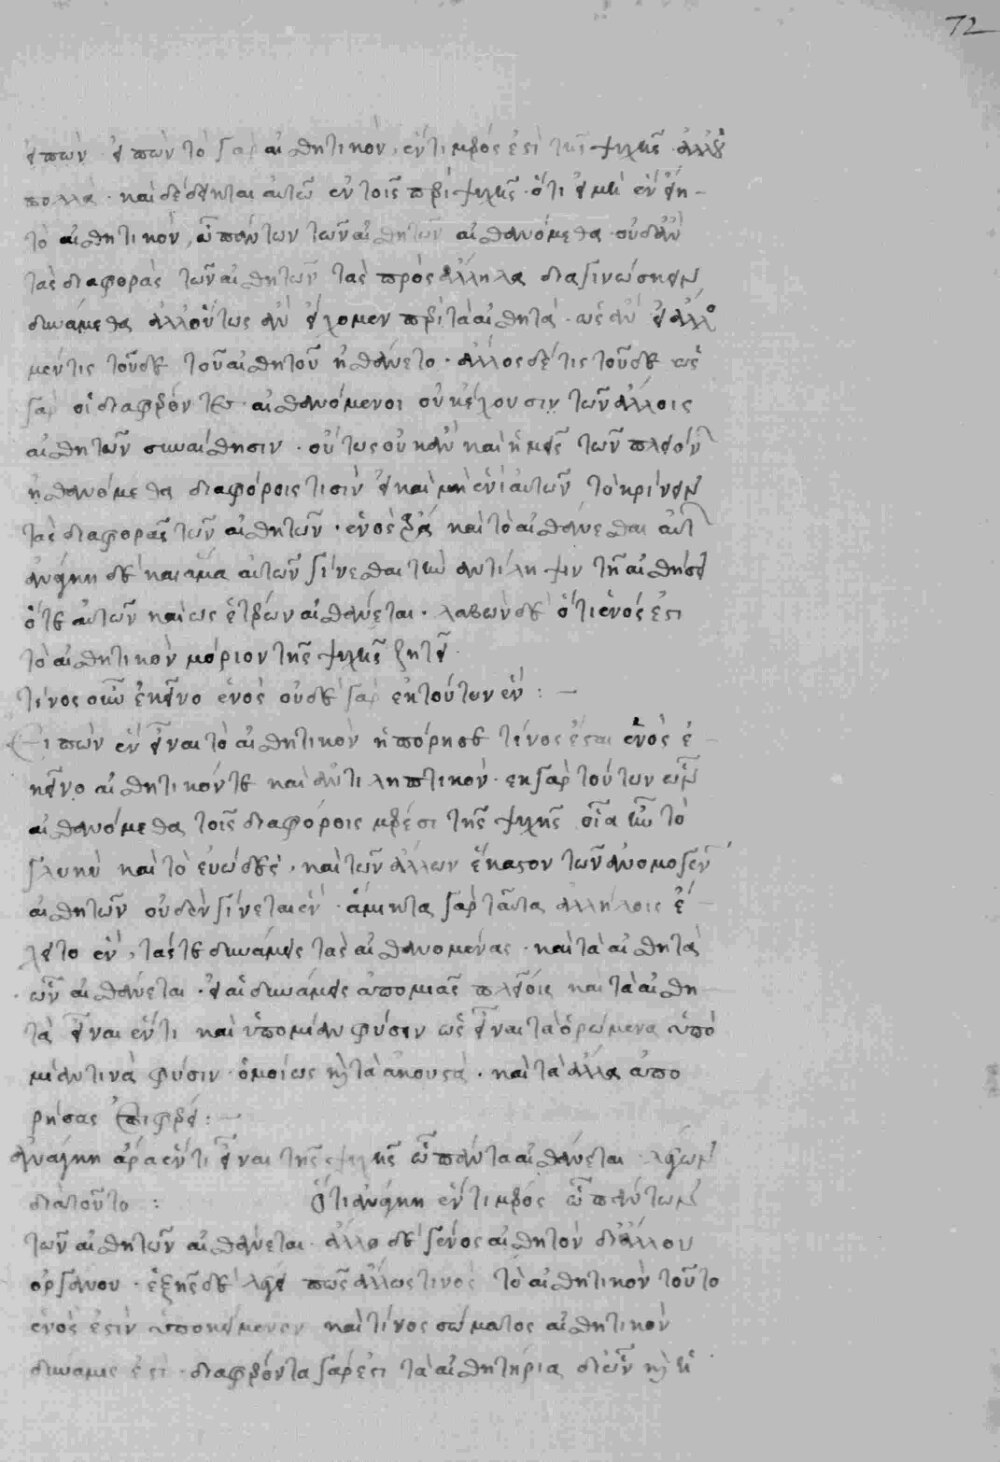 72
εἰπών· εἰπὼν τὸ γὰρ αἰσθητικὸν, ἕν τι μέρος ἐστὶ τῆς ψυχῆς ἀλλ' οὐ
πολλά· καὶ δέδεικται αὐτῶ ἐν τοῖς περὶ ψυχῆς· ὅτι εἰ μὴ ἓν εἴη
τὸ αἰσθητικόν, ὧ πάντων τῶν αἰσθητῶν αἰσθανόμεθα οὐδ' ἂν
τὰς διαφορὰς τῶν αἰσθητῶν τὰς πρὸς ἄλληλα διαγινώσκειν
δυνάμεθα ἀλλ' οὕτως ἂν εἴχομεν περὶ τὰ αἰσθητά· ὡς ἂν εἰ ἄλλος
μέν τις τοῦδε τοῦ αἰσθητοῦ ἠσθάνετο· ἄλλος δέ τις τοῦδε ὡς
γὰρ οἱ διαφέροντες αἰσθανόμενοι οὐκ ἔχουσιν τῶν ἄλλοις
αἰσθητῶν συναίσθησιν· οὕτως οὐκ ἂν καὶ ἡμεῖς τῶν πλειόνων
ἠσθανόμεθα διαφόροις τισὶν εἰ καὶ μὴ ἑνὶ αὐτῶν τὸ κρίνειν
τὰς διαφορὰς τῶν αἰσθητῶν· ἑνὸς ἄρα καὶ τὸ αἰσθάνεσθαι αὐτῶν
ἀνάγκη δὲ καὶ ἅμα αὐτῶν γίνεσθαι τὴν ἀντίληψιν τῆ αἰσθήσει
ὅτε αὐτῶν καὶ ὡς ἑτέρων αἰσθάνεται· λαβὼν δὲ ὅτι ἑνός ἐστι
τὸ αἰσθητικὸν μόριον τῆς ψυχῆς ζητεῖ
τίνος οὖν ἐκεῖνο ἑνὸς οὐδὲ γὰρ ἐκ τούτων ἕν : —
Εἰπὼν ἓν εἶναι τὸ αἰσθητικὸν ἠπόρησε τίνος ἔσται ἑνὸς ἐ
κεῖνο αἰσθητικόν τε καὶ ἀντιληπτικόν· ἐκ γὰρ τούτων ὧν
αἰσθανόμεθα τοῖς διαφόροις μέρεσι τῆς ψυχῆς οἷα ἦν τὸ
γλυκὺ καὶ τὸ εὐῶδες, καὶ τῶν ἄλλων ἕκαστον τῶν ἀνομογενῶν
αἰσθητῶν οὐδὲν γίνεται ἕν· ἄμικτα γὰρ ταῦτα ἀλλήλοις ἐ
λέγετο ἕν, τάς τε δυνάμεις τὰς αἰσθανομένας· καὶ τὰ αἰσθητὰ
ὧν αἰσθάνεται· εἰ αἱ δυνάμεις ἀπὸ μιᾶς πλείοις καὶ τὰ αἰσθη
τὰ εἶναι ἕν τι καὶ ὑπὸ μίαν φύσιν ὡς εἶναι τὰ ὁρώμενα ὑπὸ
μίαν τινὰ φύσιν· ὁμοίως καὶ τὰ ἀκουστά· καὶ τὰ ἄλλα ἀπο
ρήσας ἐπιφέρει : —
ἀνάγκη ἄρα ἕν τι εἶναι τῆς ψυχῆς ὧ πάντα αἰσθάνεται λέγων
διὰ τοῦτο : ὅτι ἀνάγκη ἕν τι μέρος ὧ πάντων
τῶν αἰσθητῶν αἰσθάνεται· ἄλλο δὲ γένος αἰσθητὸν δι' ἄλλου
ὀργάνου· ἑξῆς δὲ λέγει πῶς ἄλλως τινὸς τὸ αἰσθητικὸν τοῦτο
ἑνός ἐστιν ὑποκείμενον καὶ τίνος σώματος αἰσθητικὸν
δυνάμει ἐστὶ· διαφέροντα γάρ ἐστι τὰ αἰσθητήρια δι' ὧν καὶ ἡ